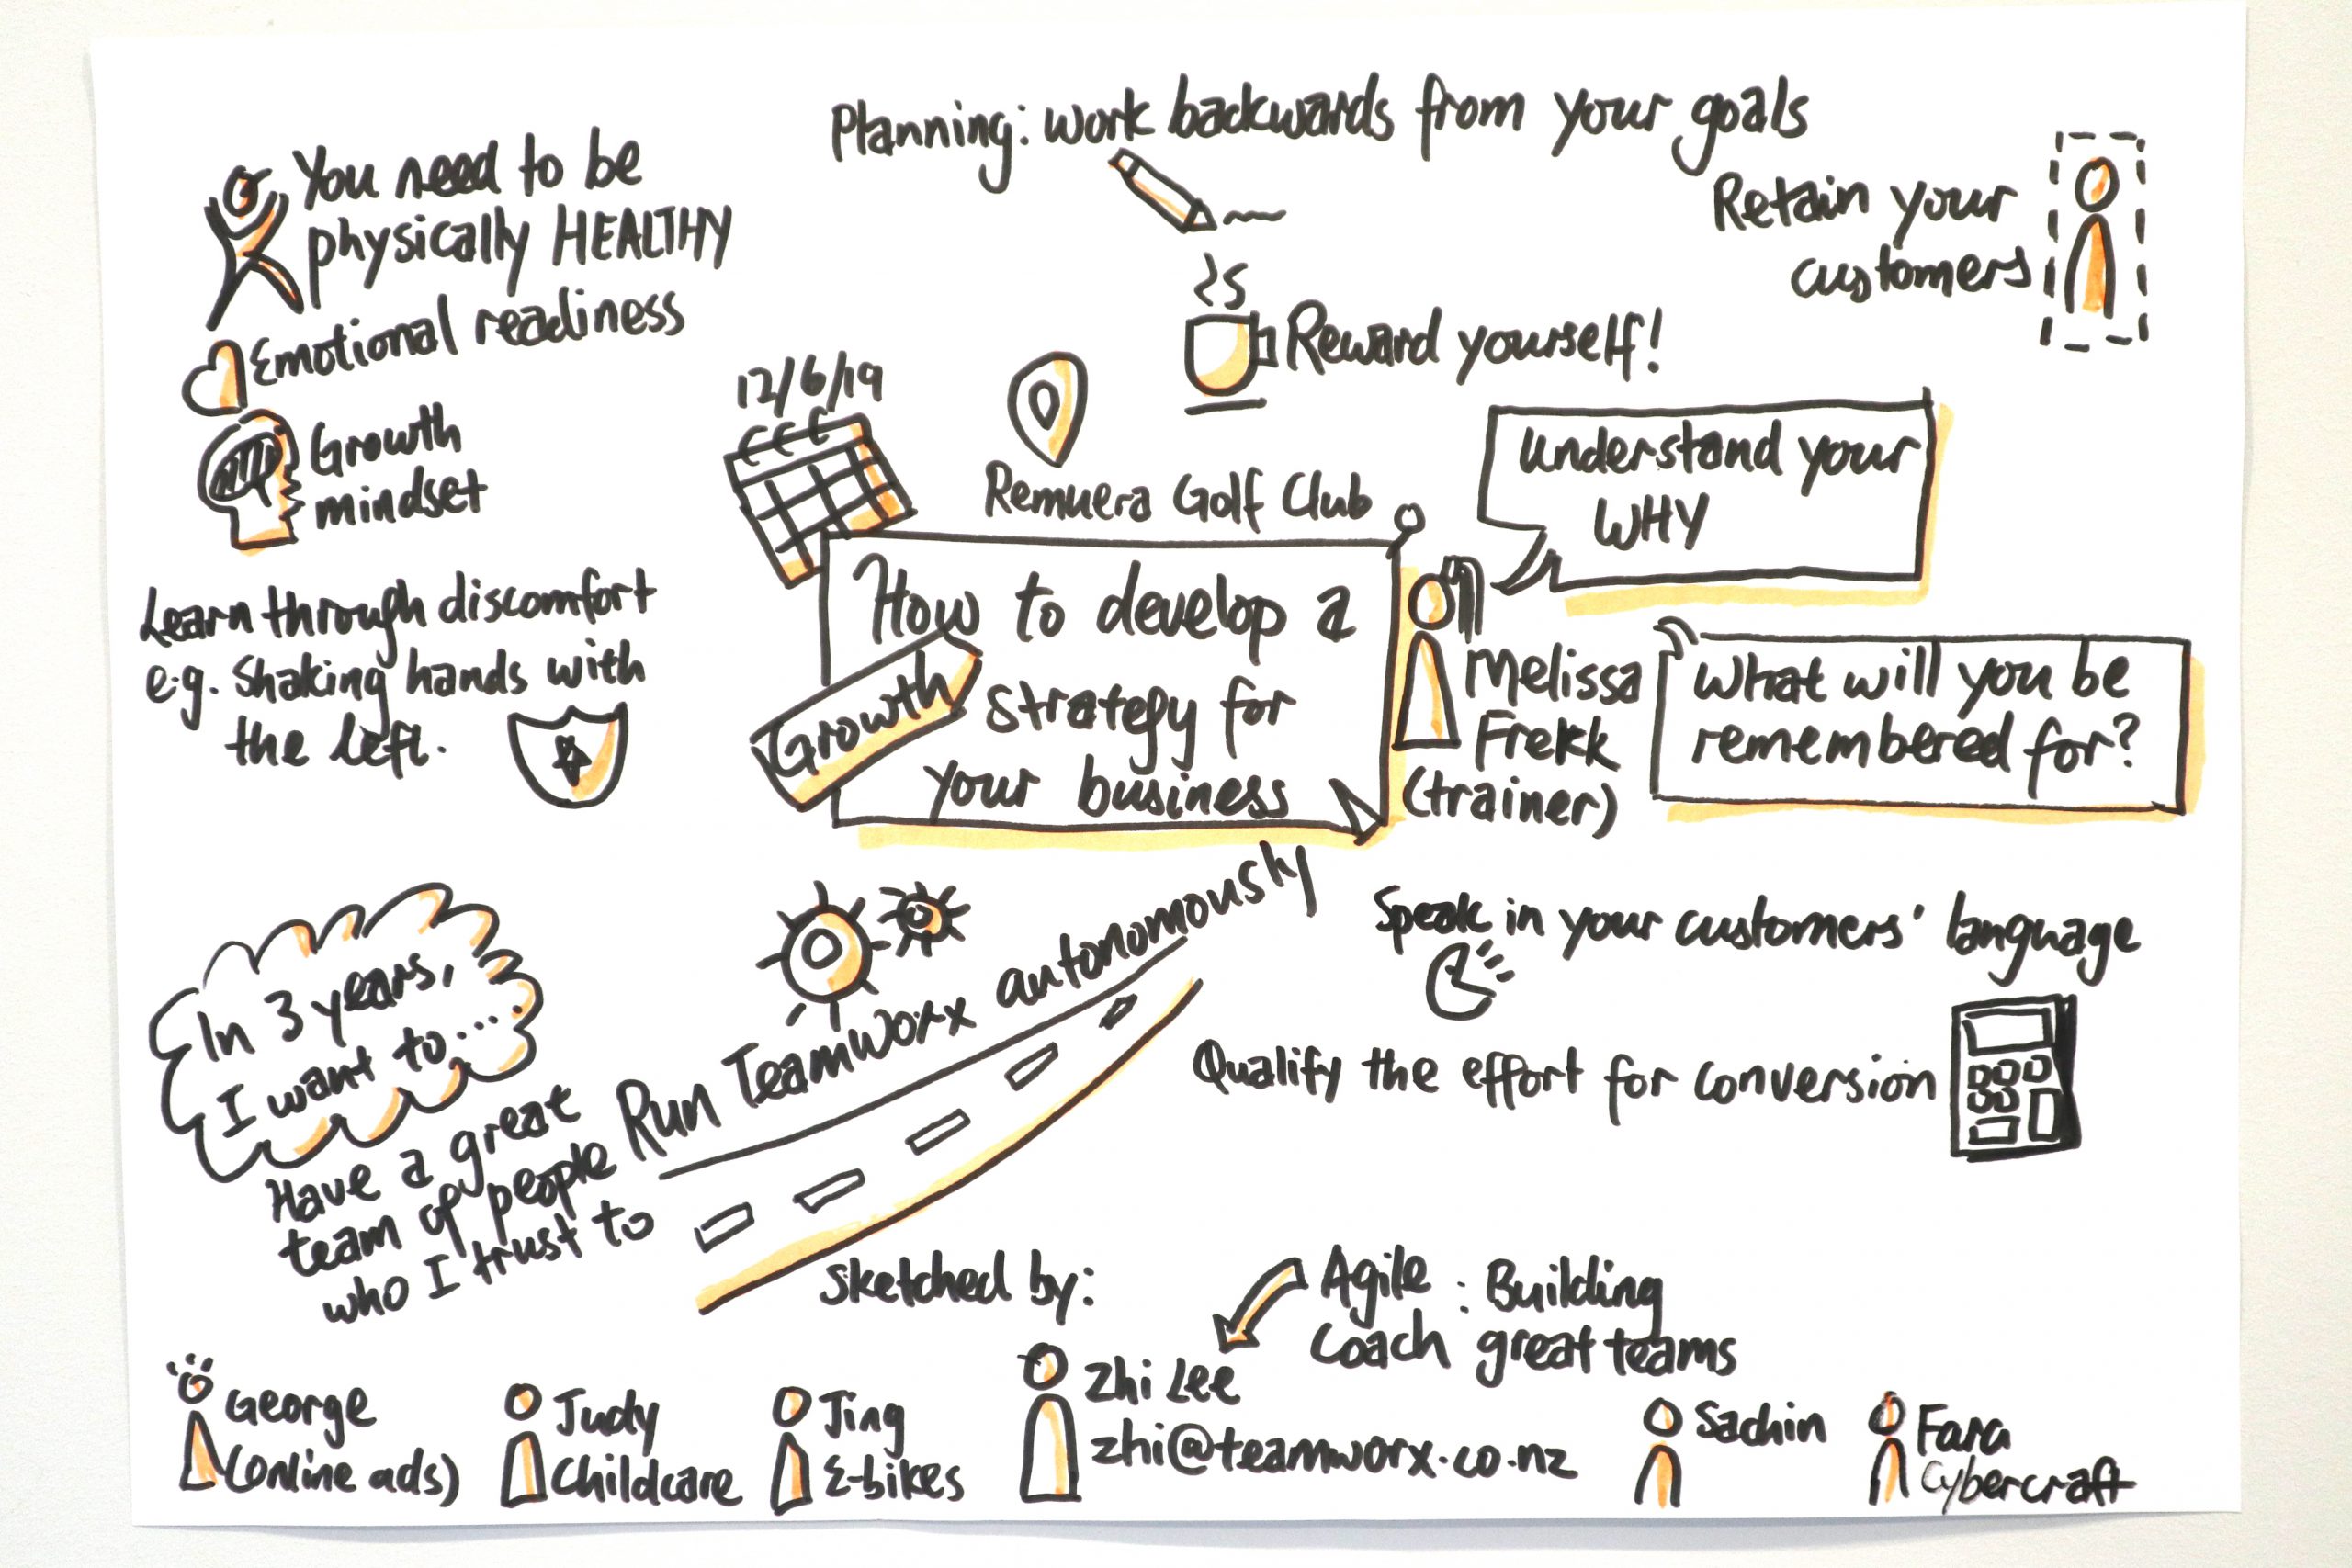 Planning: work backwards from your goals
You need to be
physically HEALTHY
Emotional readiness
Growth
mindset
Learn through discomfort
e.g. Shaking hands with
the left.
Retain your
customers
Reward yourself!
12/6/19
Remuera Golf Club
How to develop a
Growth strategy for
your business
Understand your
WHY
Melissa
Frekk
(trainer)
What will you be
remembered for?
In 3 years,
I want to....
Have a great
team of people
who I trust to
Run Teamworx autonomously
Speak in your customers' language
Qualify the effort for conversion
Sketched by:
Agile : Building
Coach great teams
Zhi Lee
zhi@teamworx.co.nz
George
(online ads)
Judy
Childcare
Jing
E-bikes
Sachin
Fara
Cybercraft